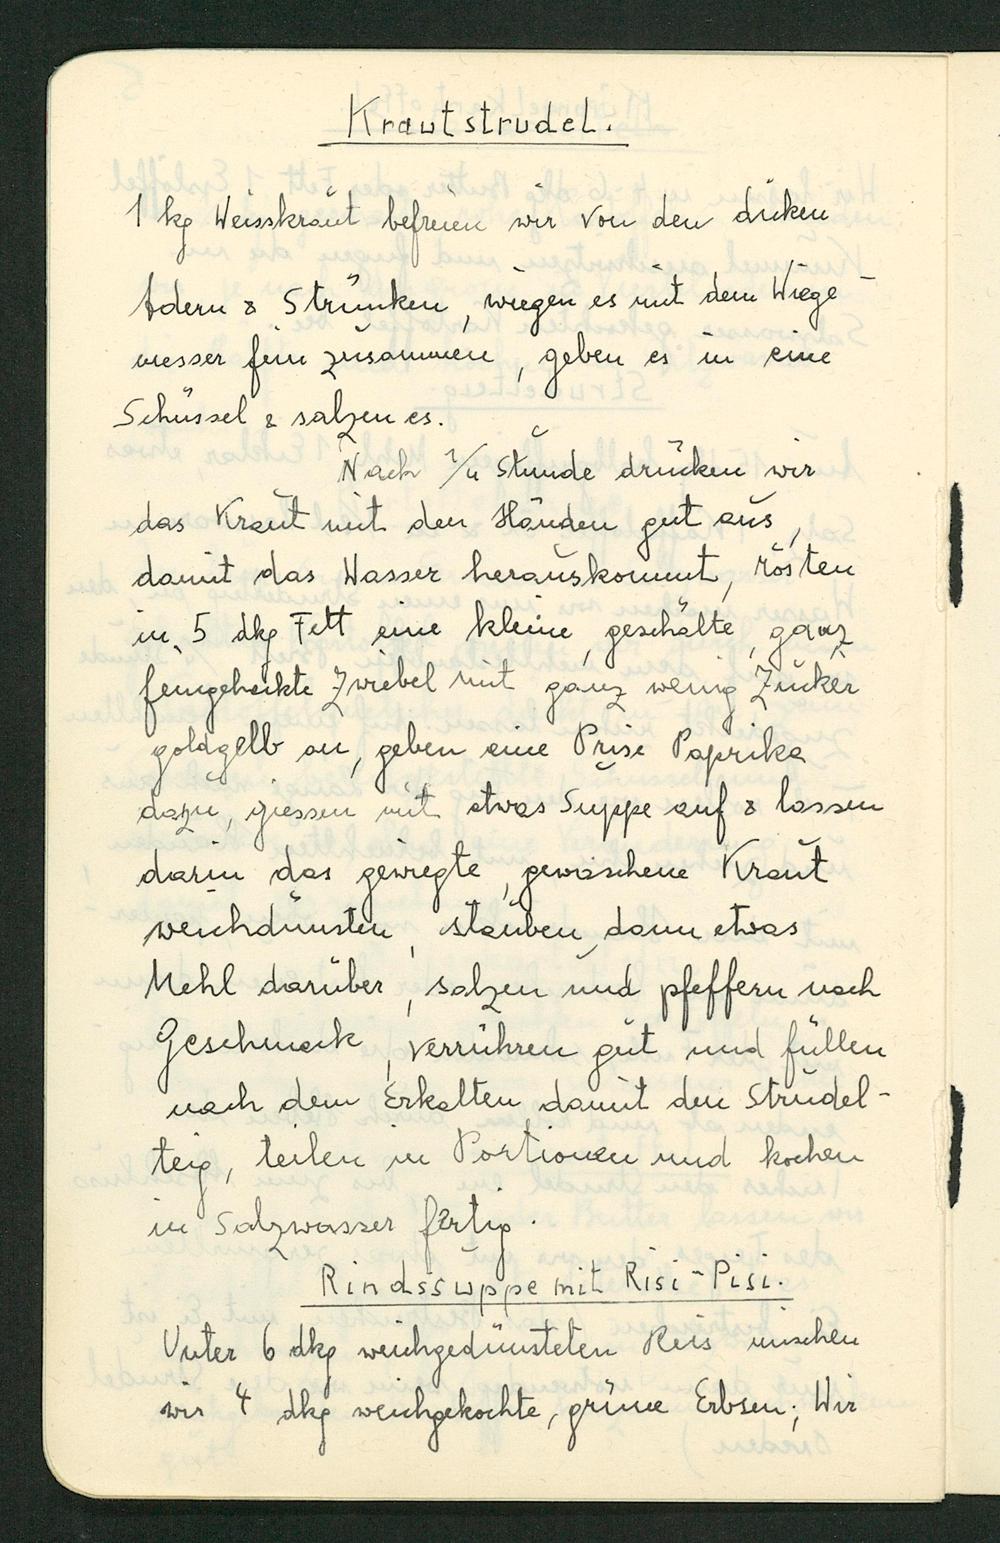 Krautstrudel.
1 kg Weisskraut befreien wir von den dicken
Adern & Strünken, wiegen es mit dem Wiege-
messer fein zusammen, geben es in eine
Schüssel & salzen es.
Nach 1/4 Stunde drücken wir
das Kraut mit den Händen gut aus,
damit das Wasser herauskommt, rösten
in 5 dkg Fett eine kleine, geschälte, ganz
feingehackte Zwiebel mit ganz wenig Zucker
goldgelb an, geben eine Prise Paprika
dazu, giessen mit etwas Suppe auf & lassen
darin das gewiegte, gewaschene Kraut
weichdünsten, stauben dann etwas
Mehl darüber, salzen und pfeffern nach
Geschmack, verrühren gut und füllen
nach dem Erkalten damit den Strudel-
teig, teilen in Portionen und kochen
in Salzwasser fertig.
Rindssuppe mit Risi-Pisi.
Unter 6 dkg weichgedünsteten Reis mischen
wir 4 dkg weichgekochte, grüne Erbsen; Wir